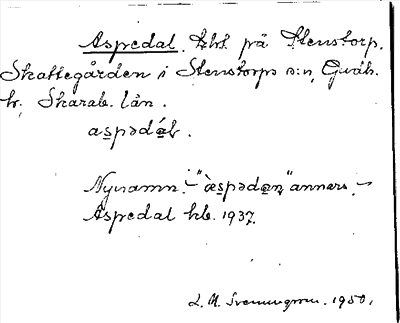 Aspedal. Lht på Stenstorp,
Skattegården i Stenstorps s:n, Gudh.
h. Skarab. län.
aspədáɫ.
Nynamn. – "àspədαn" annars –
Aspedal hb. 1937.
L. M. Svenungsson. 1950.